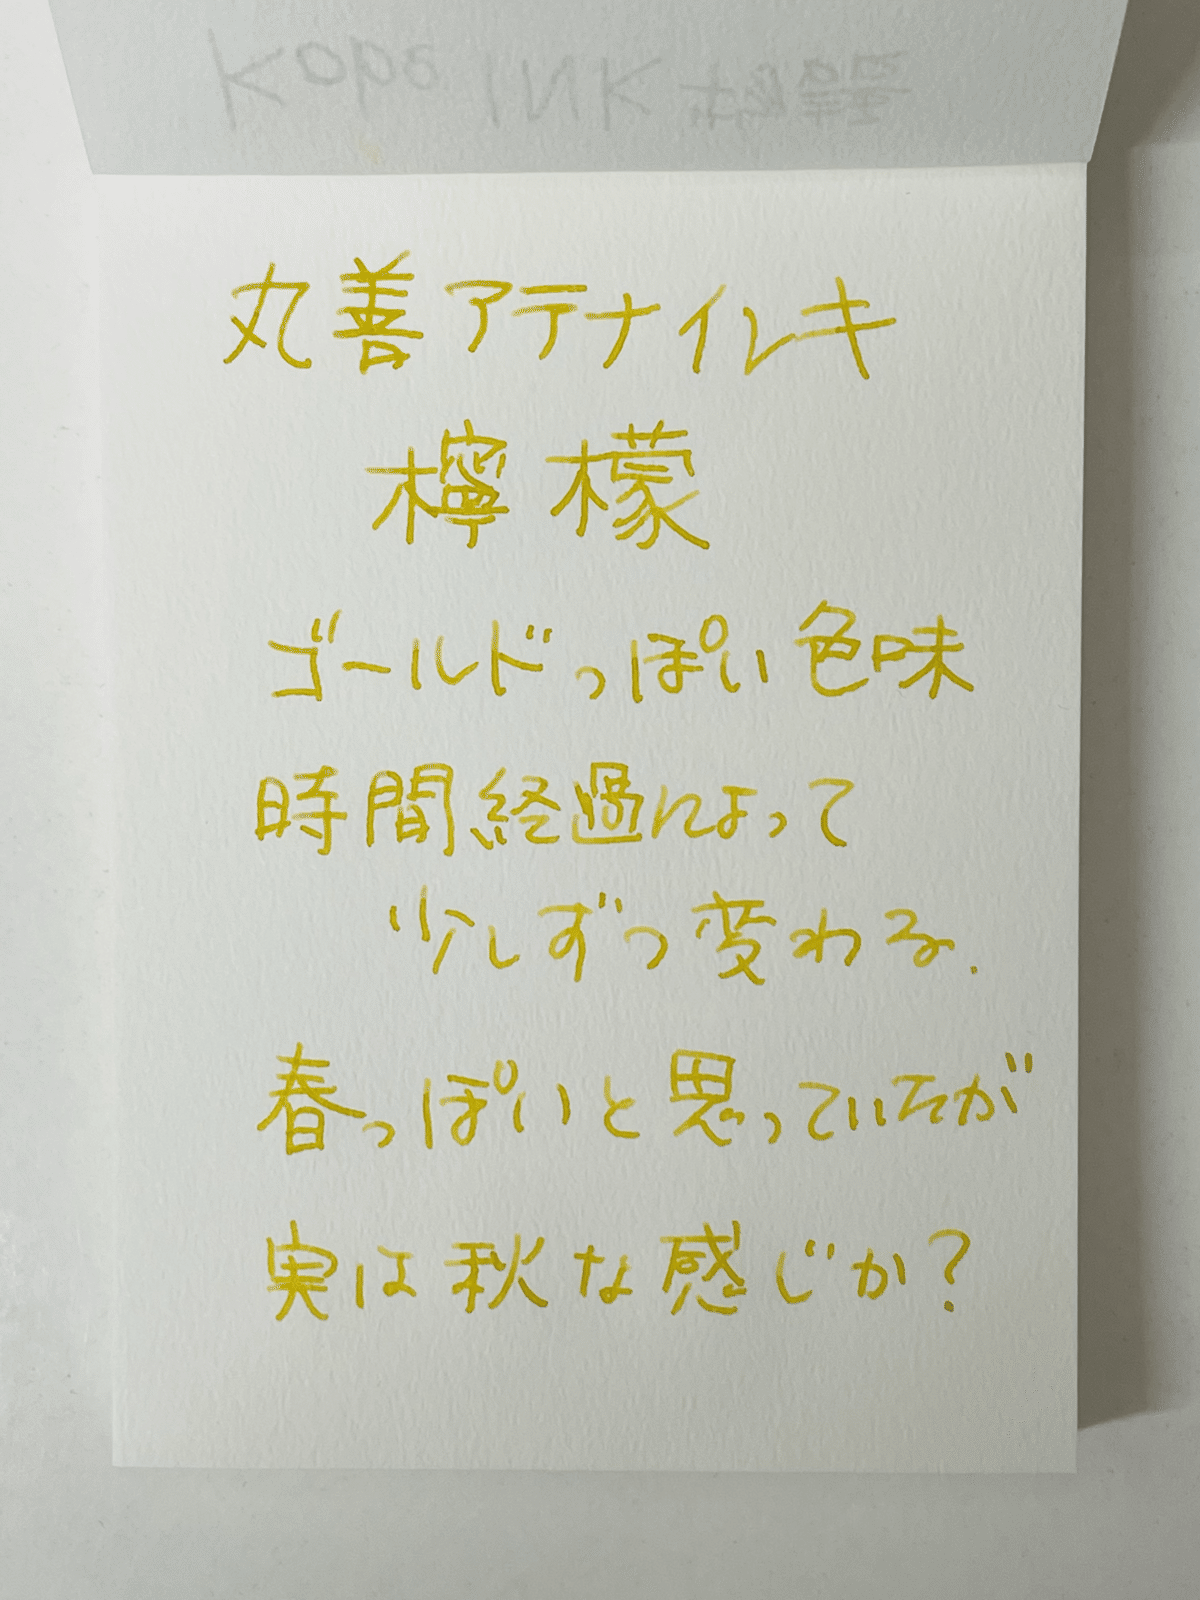 Kobe INK 物語
丸善アテナインキ
檸檬
ゴールドっぽい色味
時間経過によって
少しずつ変わる.
春っぽいと思っていたが
実は秋な感じか?